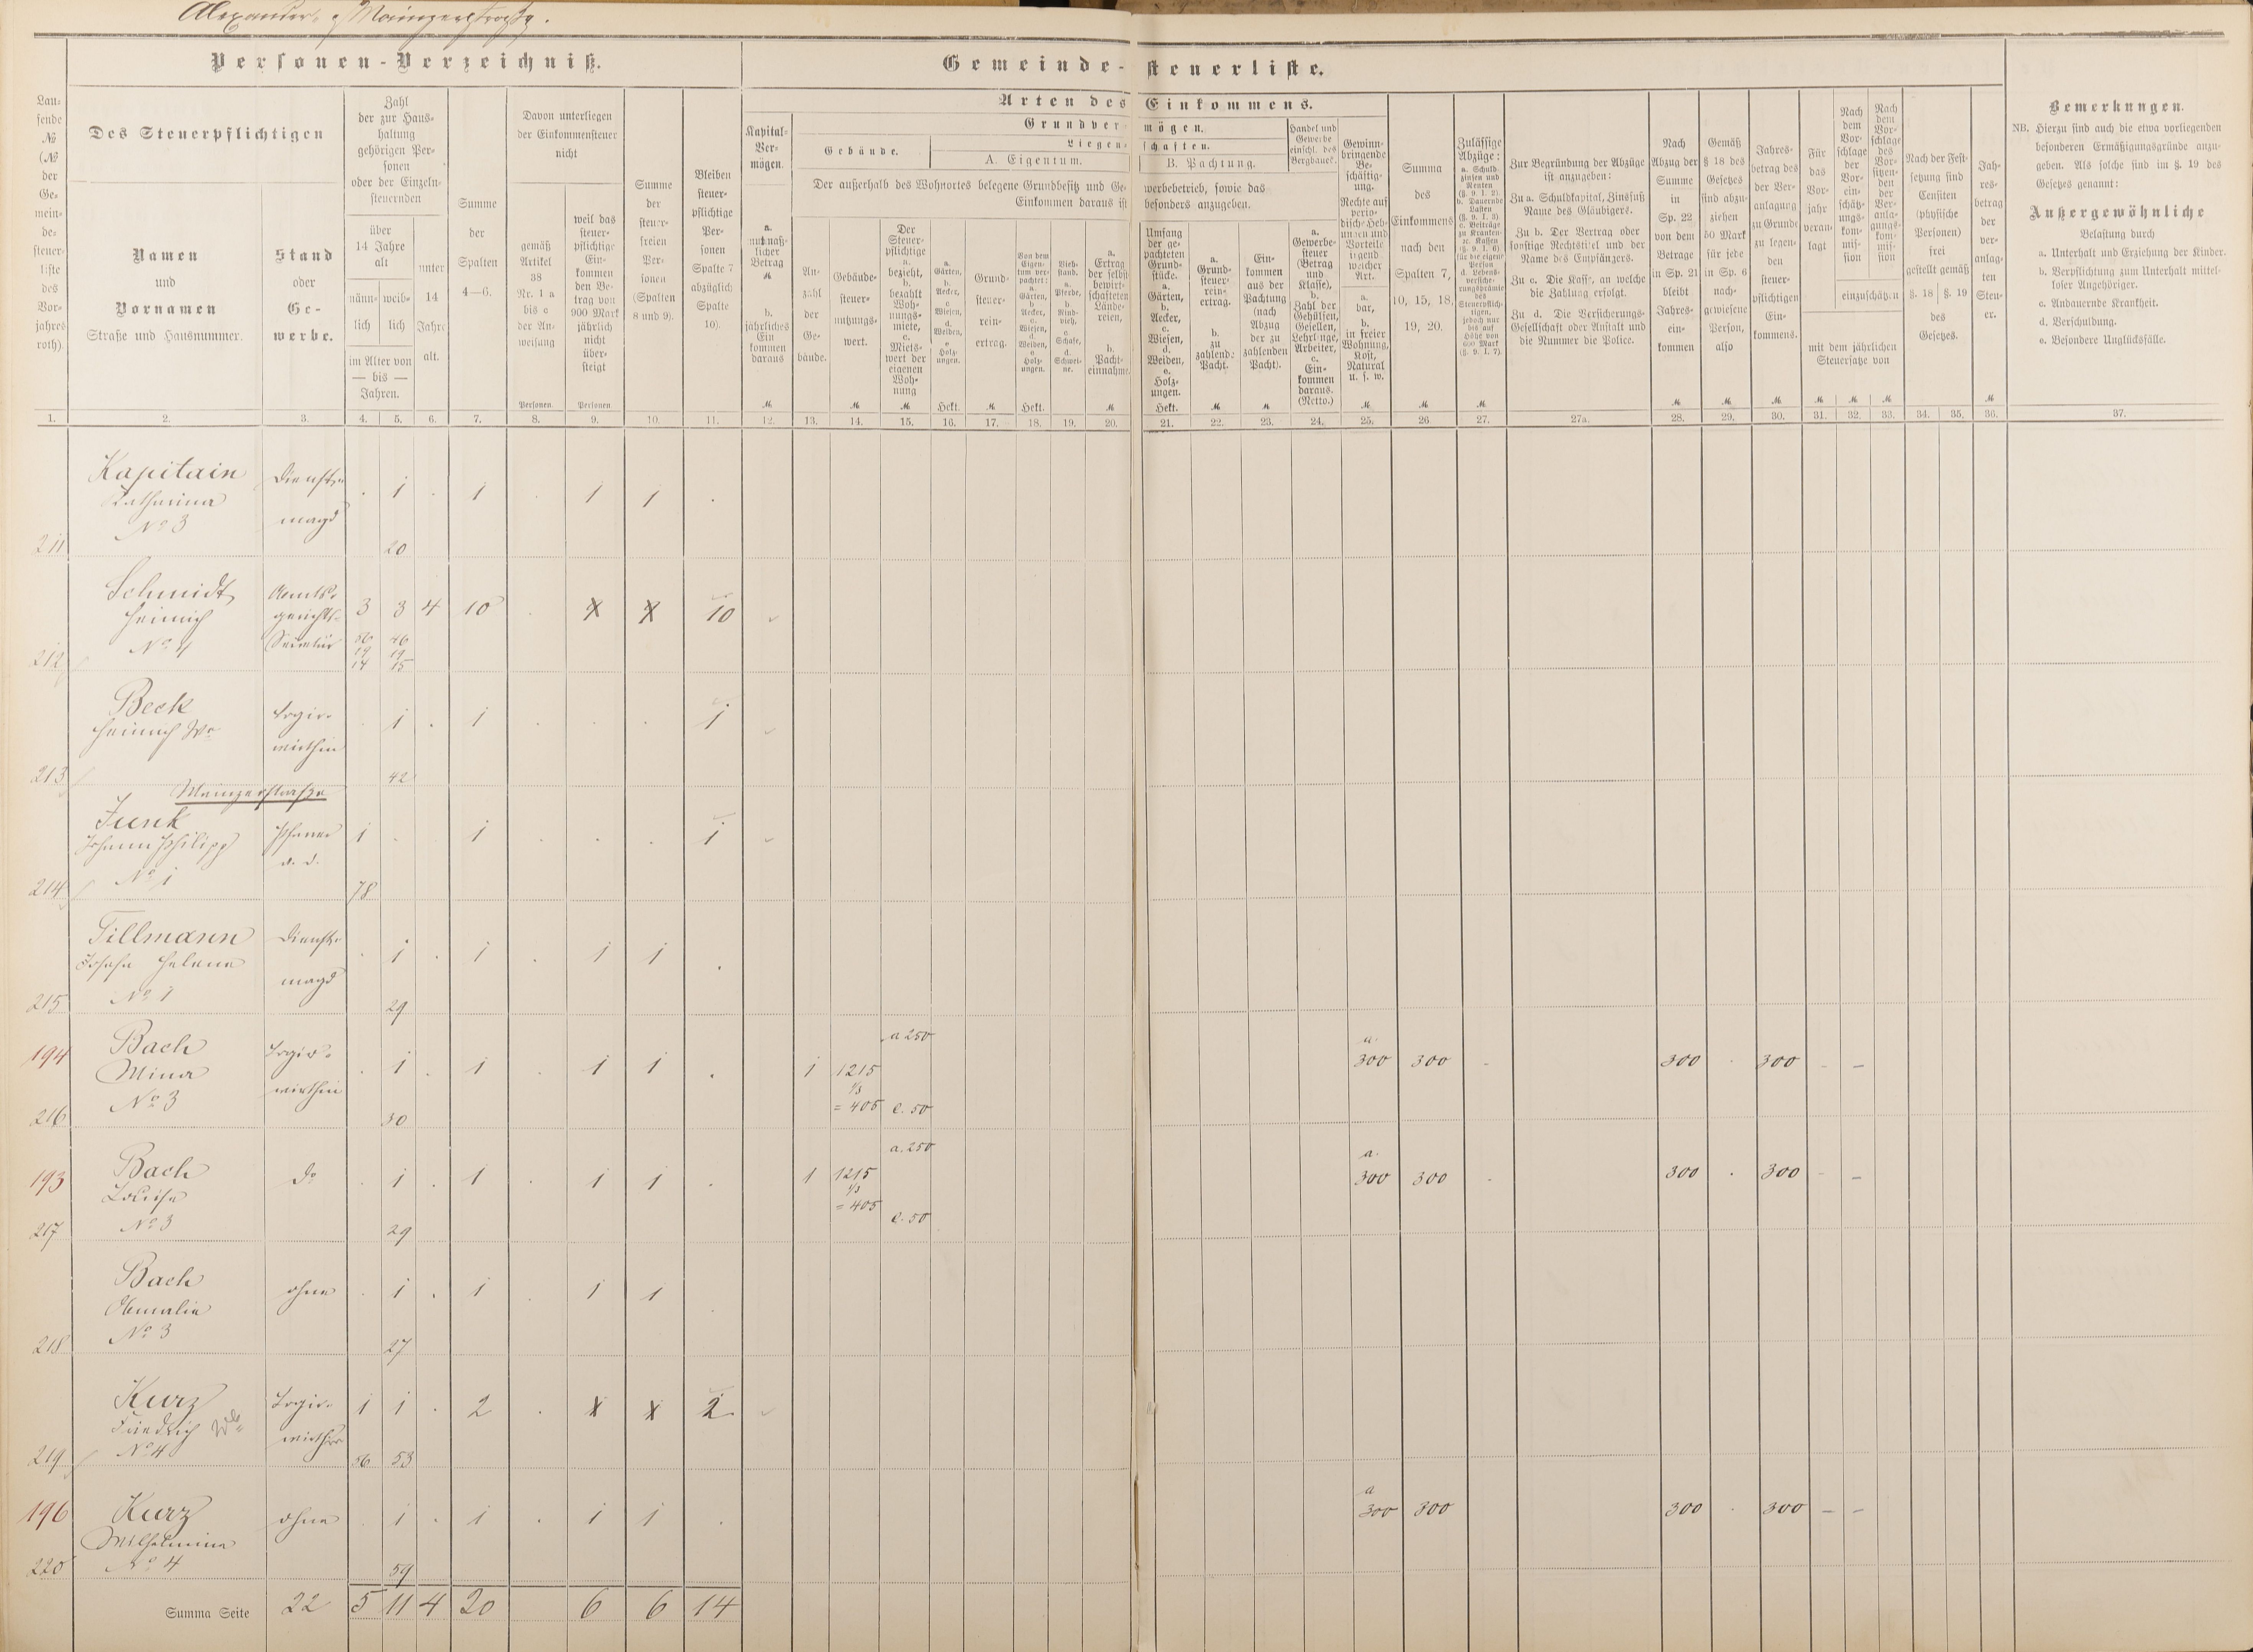 Alexander- & Mainzerstraße.
Personen-Verzeichniß.
Gemeinde-steuerliste.
Laufende № (№ der Gemeindesteuerliste des Vorjahres roth).
Des Steuerpflichtigen
Namen
und
Vornamen
Straße und Hausnummer.
Stand
oder
Gewerbe.
Zahl
der zur Haus-
haltung
gehörigen Per-
sonen
oder der Einzeln-
steuernden
über
14 Jahre
alt
männ-
lich
weib-
lich
im Alter von
— bis —
Jahren.
unter
14
Jahre
alt.
Summe
der
Spalten
4—6.
Davon unterliegen
der Einkommensteuer
nicht
gemäß
Artikel
38
Nr. 1 a
bis e
der An-
weisung
Personen.
weil das
steuer-
pflichtige
Ein-
kommen
den Be-
trag von
900 Mark
jährlich
nicht
über-
steigt
Personen.
Summe
der
steuer-
freien
Per-
sonen
(Spalten
8 und 9).
Bleiben
steuer-
pflichtige
Per-
sonen
Spalte 7
abzüglich
Spalte
10).
Arten des Einkommens.
Kapital-
Ver-
mögen.
a.
muthmaß-
licher
Betrag
ℳ
b.
jährliches
Ein
kommen
daraus
ℳ
Grundvermögen.
Gebäude.
Liegenschaften.
A. Eigentum.
B. Pachtung.
Der außerhalb des Wohnortes belegene Grundbesitz und Gewerbebetrieb, sowie das
Einkommen daraus ist besonders anzugeben.
An-
zahl
der
Ge-
bäude.
Gebäude-
steuer-
nutzungs-
wert.
ℳ
Der
Steuer-
pflichtige
a.
bezieht,
b.
bezahlt
Woh-
nungs-
miete,
c.
Miets-
wert der
eigenen
Woh-
nung
ℳ
a.
Gärten,
b.
Aecker,
c
Wiesen,
d.
Weiden,
e
Holz-
ungen.
Hekt.
Grund-
steuer-
rein-
ertrag.
ℳ
Von dem
Eigen-
tum ver-
pachtet:
a.
Gärten,
b
Aecker,
c.
Wiesen,
d.
Weiden,
e.
Holz-
ungen.
Hekt.
Vieh-
stand.
a.
Pferde,
b
Rind-
vieh,
c.
Schafe,
d.
Schwei-
ne.
a.
Ertrag
der selbst
bewirt-
schafteten
Lände-
reien,
b.
Pacht-
einnahme.
ℳ
Umfang
der ge-
pachteten
Grund-
stücke.
a.
Gärten,
b.
Aecker,
c.
Wiesen,
d.
Weiden,
e.
Holz-
ungen.
Hekt.
a.
Grund-
steuer-
rein-
ertrag.
b.
zu
zahlende
Pacht.
ℳ
Ein-
kommen
aus der
Pachtung
(nach
Abzug
der zu
zahlenden
Pacht).
ℳ
Handel und
Gewerbe
einschl. des
Bergbaues.
a.
Gewerbe-
steuer
(Betrag
und
Klasse),
b.
Zahl der
Gehülfen,
Gesellen,
Lehrlinge,
Arbeiter,
c.
Ein-
kommen
daraus.
(Netto.)
Gewinn-
bringende
Be-
schäftig-
ung.
Rechte auf
perio-
dische Heb-
ungen und
Vorteile
irgend
welcher
Art.
a.
bar,
b.
in freier
Wohnung,
Kost,
Natural
u. s. w.
ℳ
Summa
des
Einkommens
nach den
Spalten 7,
10, 15, 18,
19, 20.
ℳ
Zulässige
Abzüge:
a. Schuld-
zinsen und
Renten
(§. 9. I. 2).
b. Dauernde
Lasten
(§. 9. I. 3).
c. Beiträge
zu Kranken-
2c. Kassen
(§. 9. I. 6)
für die eigene
Person
d. Lebens-
versiche-
rungsprämie
des
Steuerpflich-
tigen,
jedoch nur
bis auf
Höhe von
600 Mark
(§. 9. I. 7).
ℳ
Zur Begründung der Abzüge
ist anzugeben:
Zu a. Schuldkapital, Zinsfuß
Name des Gläubigers.
Zu b. Der Vertrag oder
sonstige Rechtstitel und der
Name des Empfängers.
Zu c. Die Kasse, an welche
die Zahlung erfolgt.
Zu d. Die Versicherungs-
Gesellschaft oder Anstalt und
die Nummer die Police.
Nach
Abzug der
Summe
in
Sp. 22
von dem
Betrage
in Sp. 21
bleibt
Jahres-
ein-
kommen
ℳ
Gemäß
§ 18 des
Gesetzes
sind abzu-
ziehen
50 Mark
für jede
in Sp. 6
nach-
gewiesene
Person,
also
ℳ
Jahres-
betrag des
der Ver-
anlagung
zu Grunde
zu legen-
den
steuer-
pflichtigen
Ein-
kommens.
ℳ
Für
das
Vor-
jahr
veran-
lagt
Nach
dem
Vor-
schlage
der
Vor-
ein-
schätz-
ungs-
kom-
mis-
sion
Nach
dem
Vor-
schlage
des
Vor-
sitzen-
den
der
Ver-
anla-
gungs-
kom-
mis-
sion
einzuschätzen
mit dem jährlichen
Steuersatze von
ℳ ℳ ℳ
Nach der Fest-
setzung sind
Censiten
(physische
Personen)
frei
gestellt gemäß
§. 18 §. 19
des
Gesetzes.
Jah-
res-
betrag
der
ver-
anlag-
ten
Steu-
er.
ℳ
Bemerkungen.
NB. Hierzu sind auch die etwa vorliegenden
besonderen Ermäßigungsgründe anzu-
geben. Als solche sind im §. 19 des
Gesetzes genannt:
Außergewöhnliche
Belastung durch
a. Unterhalt und Erziehung der Kinder.
b. Verpflichtung zum Unterhalt mittel-
loser Angehöriger.
c. Andauernde Krankheit.
d. Verschuldung.
e. Besondere Unglücksfälle.
1. 2. 3. 4. 5. 6. 7. 8. 9. 10. 11. 12. 13. 14. 15. 16. 17. 18. 19. 20. 21. 22. 23. 24. 25. 26 27. 27a. 28. 29. 30. 31. 32. 33. 34. 35. 36. 37.
Kapitain Dienst-
Katharina . 1 . 1 . 1 1 .
№ 3 magd
211 20
Schmidt Amts-
Heinrich gerichts- 3 3 4 10 . X X 10
№ 4 Secretär 56 46
19 19
212 14 15
Beck Logir-
Heinrich We . 1 . 1 . . . 1
wirthin
213 42
Mainzerstraße
Junk Pfarrer
Johann Philipp a. D. 1 . . 1 . . . 1
№ 1
214 78
Tillmann Dienst-
Helene . 1 . 1 . 1 1 .
№ 1 magd
215 29
194 Bach Logir- a 250 a.
Mina wirthin . 1 . 1 . 1 1 . 1 1215 300 300 - 300 . 300 - -
№ 3 1/3
216 30 = 405 c. 50
193 Bach do a. 250 a.
Louise . 1 . 1 . 1 1 . 1 1215 300 300 - 300 . 300 - -
1/3
= 405
217 № 3 29 c. 50
Bach ohne
Amalie . 1 . 1 . 1 1 .
№ 3
218 27
Kurz Logir- 1 1 . 2 . X X 2
Friedrich We wirthin
№ 4
219 56 53
196 Kurz ohne a
Wilhelmine . 1 . 1 . 1 1 . 300 300 300 . 300 - -
№ 4
220 59
Summa Seite 22 5 11 4 20 6 6 14